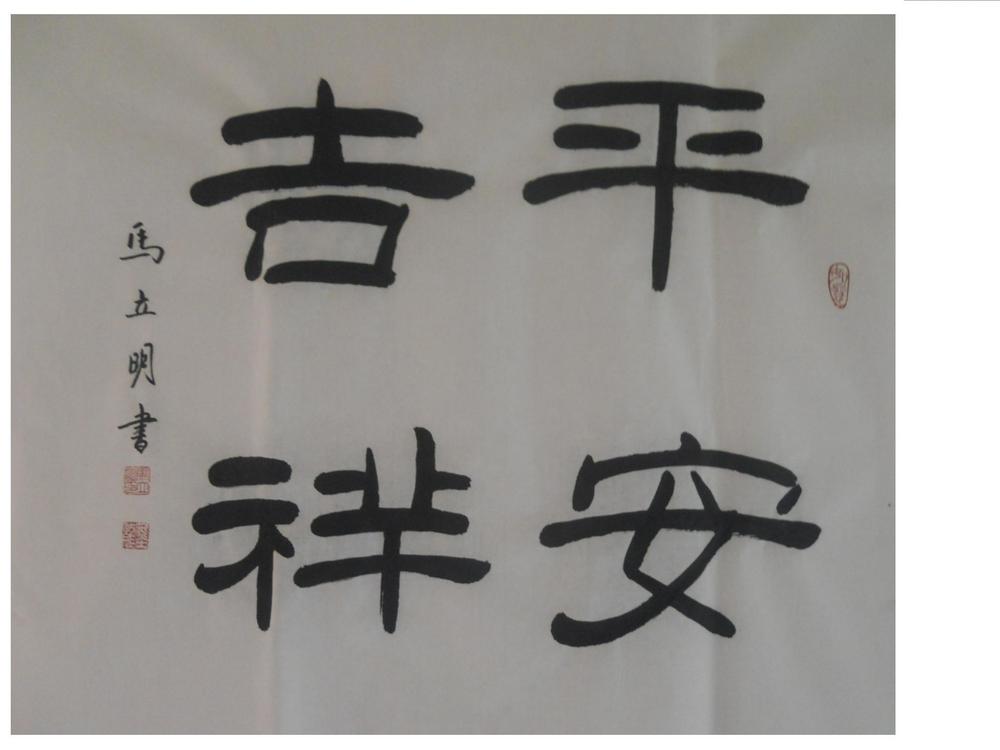 平安
吉祥
馬立明書